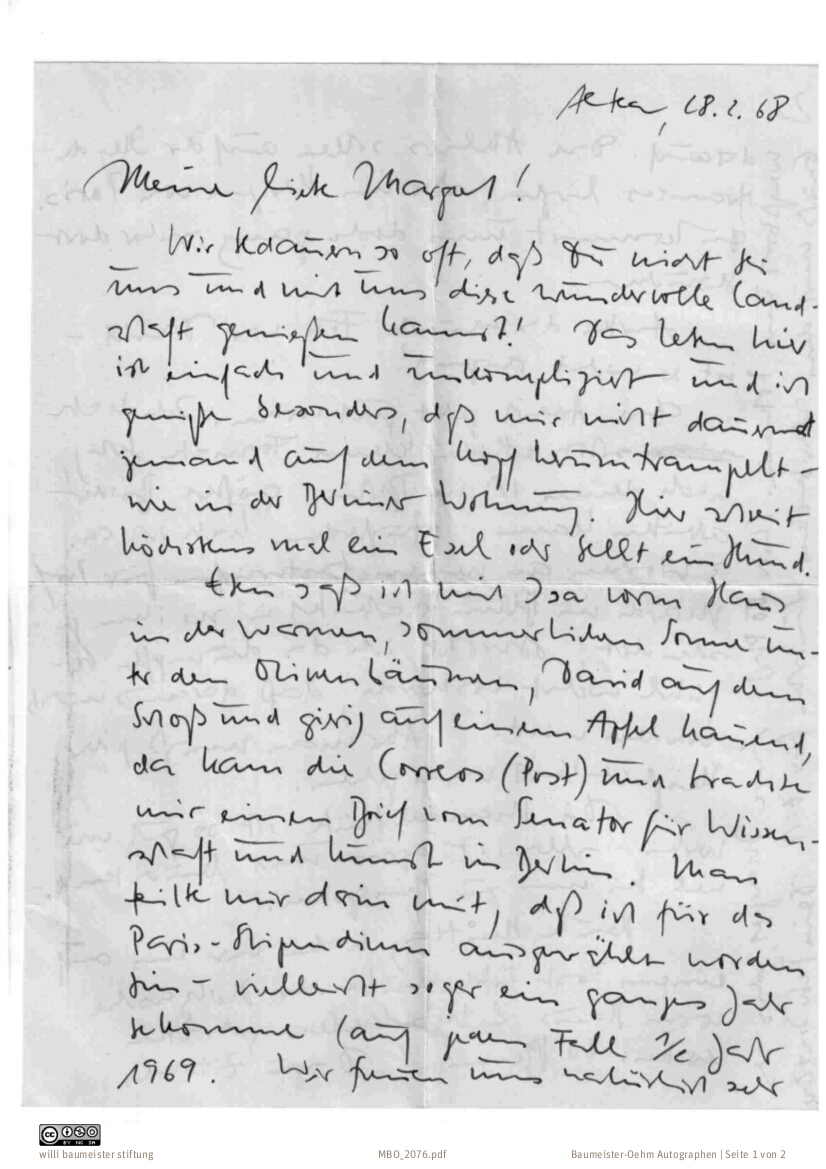 Altea, 28.2.68
Meine liebe Margret!
Wir bedauern so oft, daß Du nicht bei
uns und mit uns diese wundervolle Land-
schaft genießen kannst! Das Leben hier
ist einfach und unkompliziert und ich
genieße besonders, daß mir nicht dauernd
jemand auf dem Kopf herumtrampelt -
wie in der Berliner Wohnung. Hier schreit
höchstens mal ein Esel oder bellt ein Hund.
Eben saß ich mit Isa vorm Haus
in der warmen, sommerlichen Sonne un-
ter den Olivenbäumen, David auf dem
Schoß und gierig auf einem Apfel kauend,
da kam die Correos (Post) und brachte
mir einen Brief vom Senator für Wissen-
schaft und Kunst in Berlin. Man
teilte mir darin mit, daß ich für das
Paris-Stipendium ausgewählt worden
bin - vielleicht sogar ein ganzes Jahr
bekomme (auf jeden Fall 1/2 Jahr
1969. Wir freuen uns natürlich sehr
CC BY NC SA
willi baumeister stiftung MBO_2076.pdf Baumeister-Oehm Autographen | Seite 1 von 2